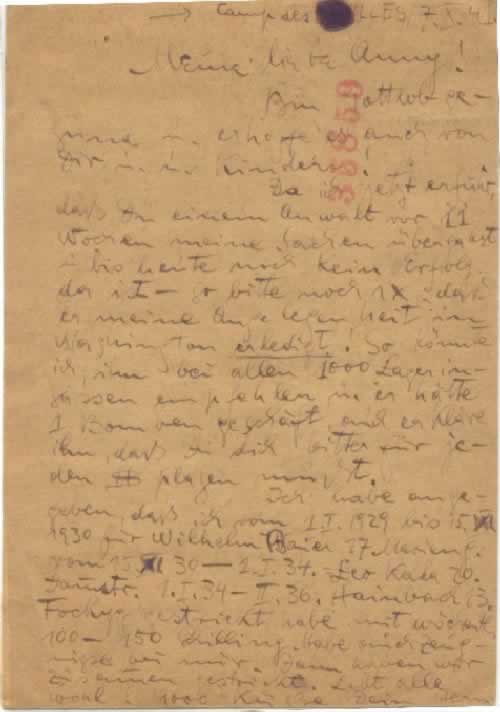 → Camp des LLES, 7. X. 41
Meine liebe Anny!
Bin Gottlob ge-
sund u. erhoffe es auch von
Dir u. u. Kindern!
38859
Da ich jetzt erfuhr,
daß Du einem Anwalt vor 11
Wochen meine Sachen übergabst
u bis heute noch kein Erfolg
da ist — so bitte noch 1x daß
er meine Angelegenheit in
Washington erledigt! So könnte
ich ihn bei allen 1000 Lagerin-
sassen empfehlen u er hätte
1 Bomben geschäft und erkläre
ihm, daß Du Dich bitter für je-
den plagen mußt.
Ich habe ange-
geben, daß ich vom 1. I. 1929 bis 15. XII
1930 für Wilhelm Baier 17 Mariang.
vom 15. XII 30 — 2. I. 34. Leo Kara 20.
1. I. 34 — II. 36. Hainbach 13.
gestrickt habe mit wöchentl
100 — 150 Schilling. Habe auch Zeug-
nisse bei mir. Dann haben wir
zusammen gestrickt. Lebt alle
wohl u 1000 Küsse Dein